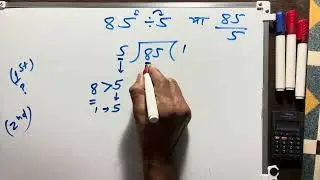 85 ÷ 5 या 85/5
5 ) 85 ( 1
(1st)
8 > 5
1 → 5
(2nd)